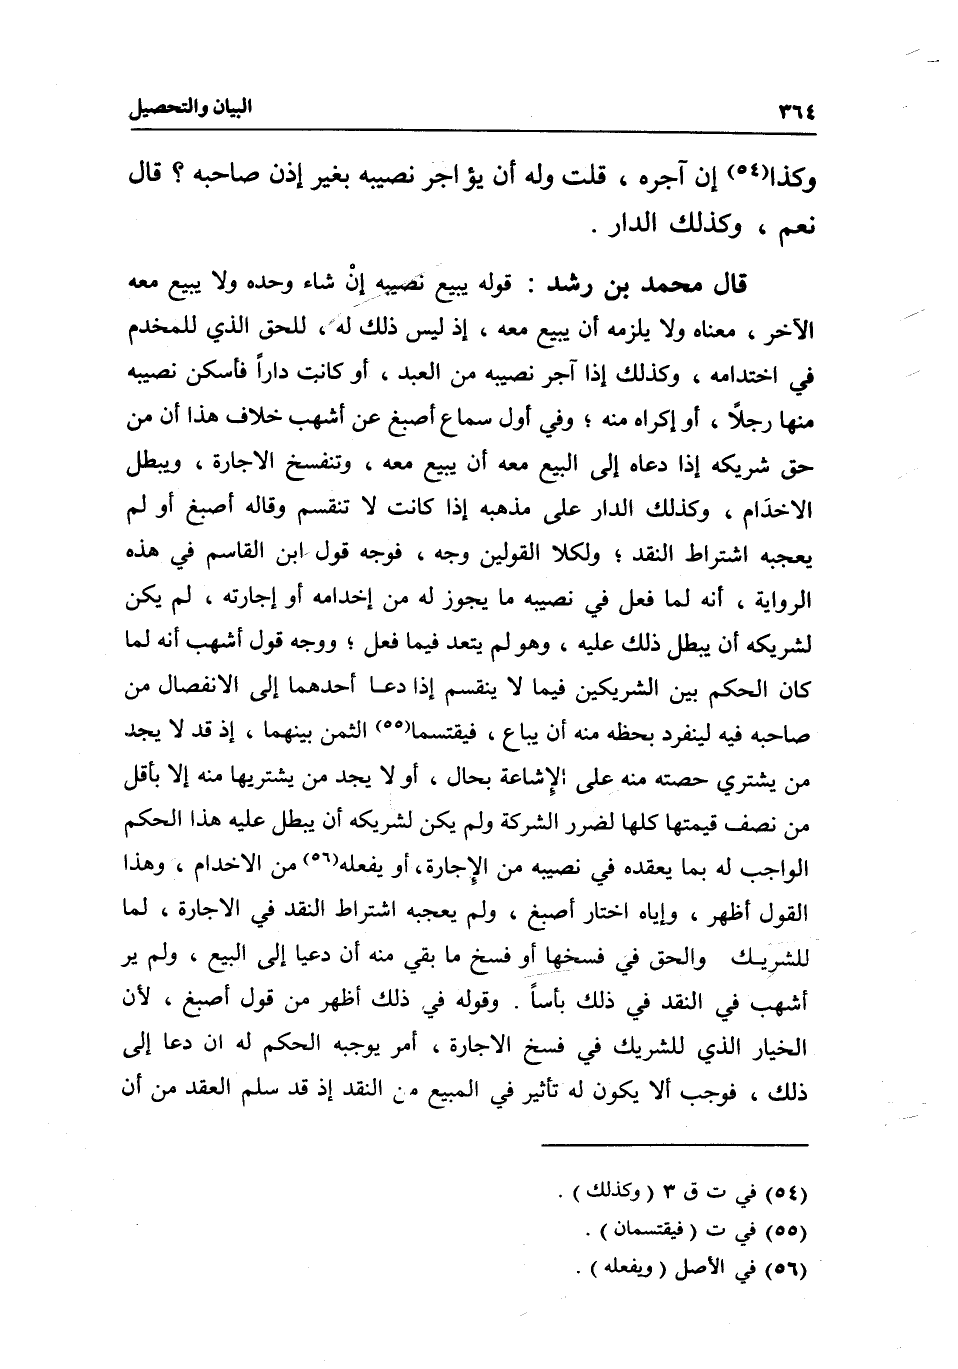 ٣٦٤ البيان والتحصيل
وكذا(٥٤) إن آجره ، قلت وله أن يؤاجر نصيبه بغير إذن صاحبه ؟ قال
نعم ، وكذلك الدار .
قال محمد بن رشد : قوله يبيع نصيبه إنْ شاء وحده ولا يبيع معه
الآخر ، معناه ولا يلزمه أن يبيع معه ، إذ ليس ذلك له ، للحق الذي للمخدم
في اختدامه ، وكذلك إذا آجر نصيبه من العبد ، أو كانت داراً فأسكن نصيبه
منها رجلاً ، أو إكراه منه ؛ وفي أول سماع أصبغ عن أشهب خلاف هذا أن من
حق شريكه إذا دعاه إلى البيع معه أن يبيع معه ، وتنفسخ الاجارة ، ويبطل
الاخدَام ، وكذلك الدار على مذهبه إذا كانت لا تنقسم وقاله أصبغ أو لم
يعجبه اشتراط النقد ؛ ولكلا القولين وجه ، فوجه قول ابن القاسم في هذه
الرواية ، أنه لما فعل في نصيبه ما يجوز له من إخدامه أو إجارته ، لم يكن
لشريكه أن يبطل ذلك عليه ، وهو لم يتعد فيما فعل ؛ ووجه قول أشهب أنه لما
كان الحكم بين الشريكين فيما لا ينقسم إذا دعا أحدهما إلى الانفصال من
صاحبه فيه لينفرد بحظه منه أن يباع ، فيقتسما(٥٥) الثمن بينهما ، إذ قد لا يجد
من يشتري حصته منه على الإشاعة بحال ، أو لا يجد من يشتريها منه إلا بأقل
من نصف قيمتها كلها لضرر الشركة ولم يكن لشريكه أن يبطل عليه هذا الحكم
الواجب له بما يعقده في نصيبه من الإجارة، أو يفعله(٥٦) من الاخدام ، وهذا
القول أظهر ، وإياه اختار أصبغ ، ولم يعجبه اشتراط النقد في الاجارة ، لما
للشريك والحق في فسخها أو فسخ ما بقي منه أن دعيا إلى البيع ، ولم ير
أشهب في النقد في ذلك بأساً . وقوله في ذلك أظهر من قول أصبغ ، لأن
الخيار الذي للشريك في فسخ الاجارة ، أمر يوجبه الحكم له ان دعا إلى
ذلك ، فوجب ألا يكون له تأثير في المبيع من النقد إذ قد سلم العقد من أن
(٥٤) في ت ق ٣ ( وكذلك ) .
(٥٥) في ت ( فيقتسمان ) .
(٥٦) في الأصل ( ويفعله ) .